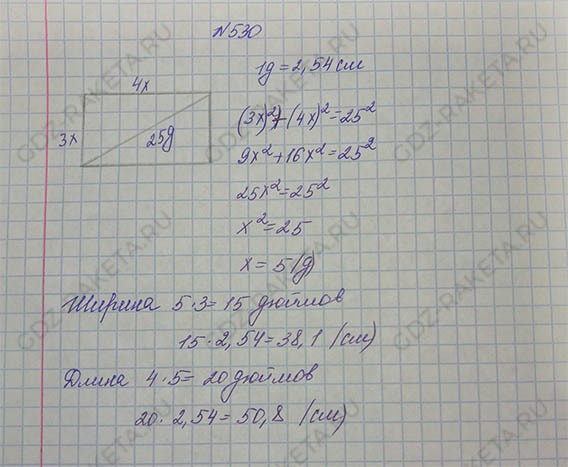 №530
1д = 2,54 см
4x
3x
25д
(3x)²+(4x)²=25²
9x²+16x²=25²
25x²=25²
x²=25
x = 5 (д)
Ширина 5·3=15 дюймов
15·2,54=38,1 (см)
Длина 4·5=20 дюймов
20·2,54=50,8 (см)
GDZ-RAKETA.RU